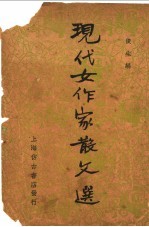 現代女作家散文選
上海仿古書店發行